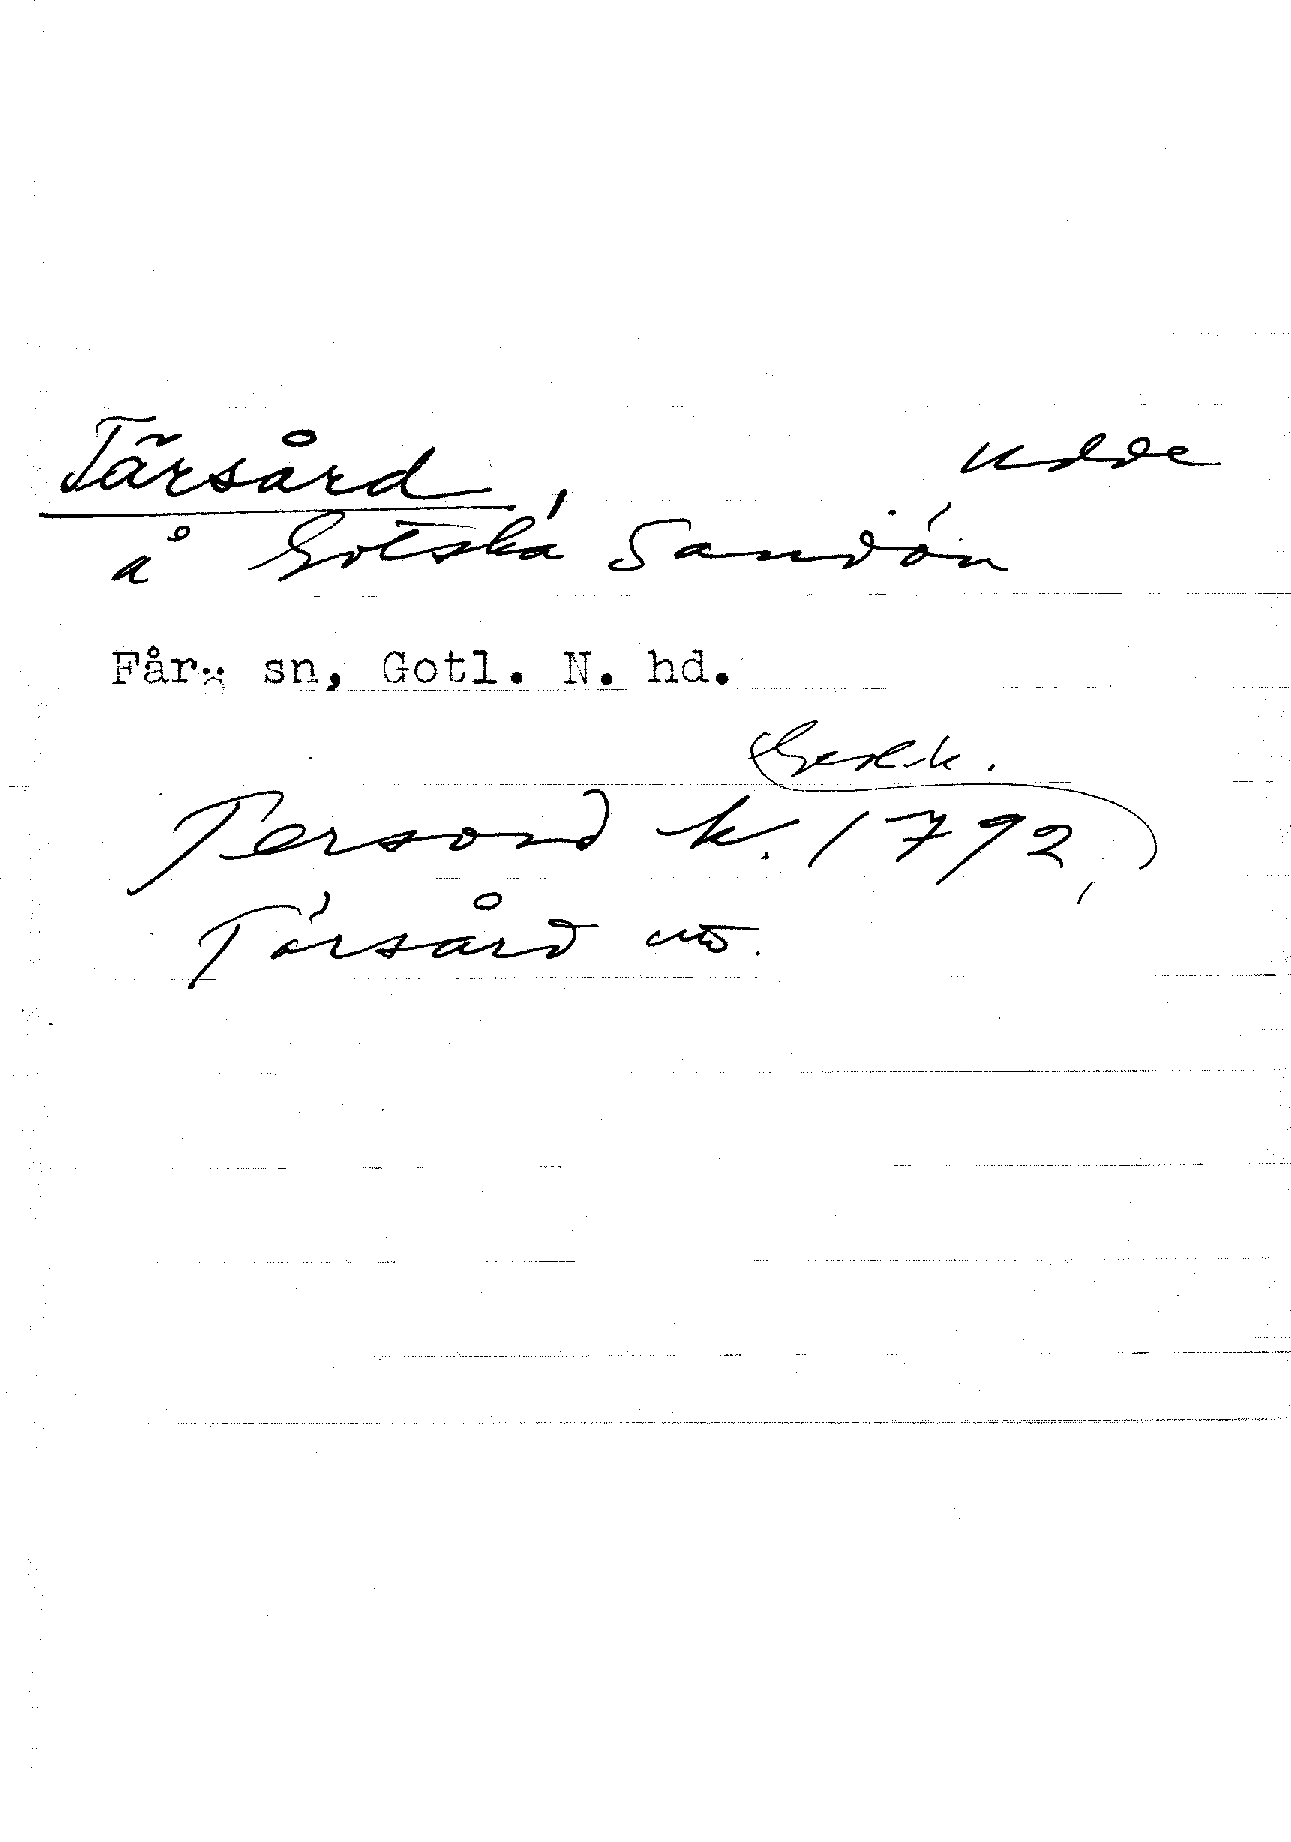 Tärsård, udde
å Gotska Sandön
Får: sn, Gotl. N. hd.
Geol. k.
Tersord k. 1792,
Törsård